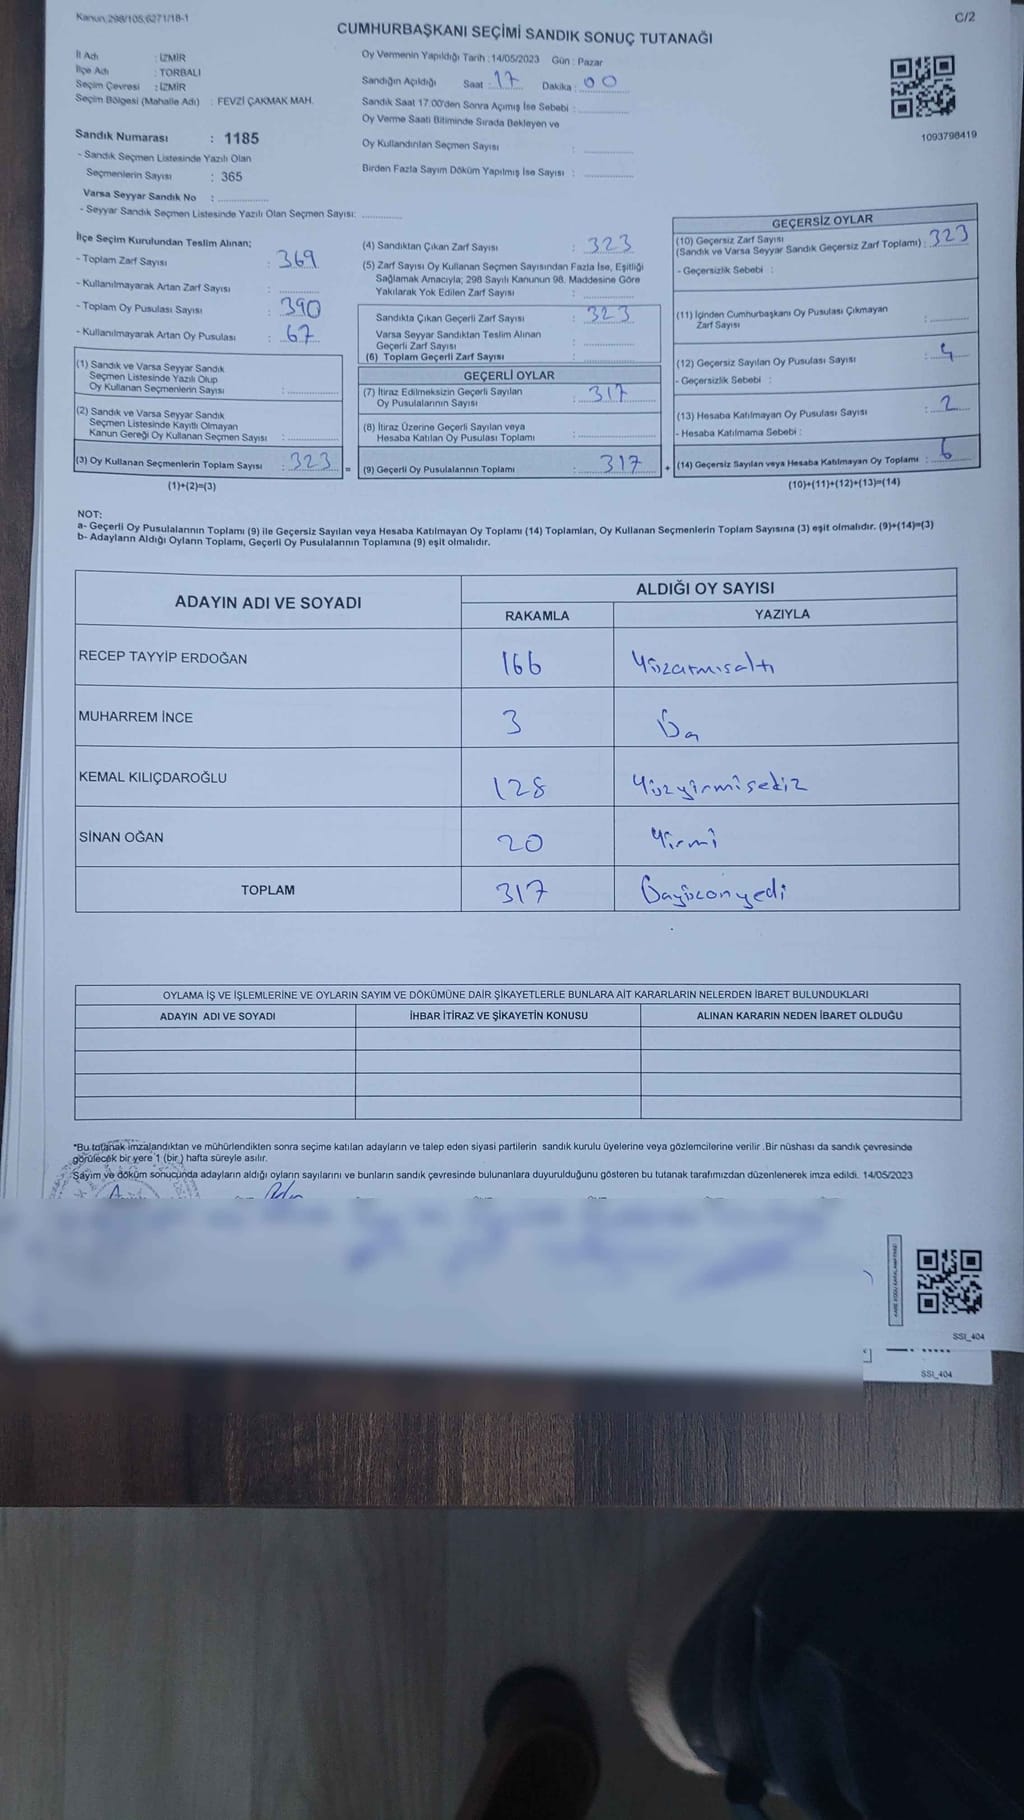 Kanun;298/105;6271/18-1
C/2
CUMHURBAŞKANI SEÇİMİ SANDIK SONUÇ TUTANAĞI
İl Adı : İZMİR
İlçe Adı : TORBALI
Seçim Çevresi : İZMİR
Seçim Bölgesi (Mahalle Adı) : FEVZİ ÇAKMAK MAH.
Sandık Numarası : 1185
- Sandık Seçmen Listesinde Yazılı Olan
Seçmenlerin Sayısı : 365
Varsa Seyyar Sandık No :
- Seyyar Sandık Seçmen Listesinde Yazılı Olan Seçmen Sayısı:
Oy Vermenin Yapıldığı Tarih : 14/05/2023 Gün : Pazar
Sandığın Açıldığı Saat : 17 Dakika : 00
Sandık Saat 17.00'den Sonra Açımış İse Sebebi :
Oy Verme Saati Bitiminde Sırada Bekleyen ve
Oy Kullandırılan Seçmen Sayısı :
Birden Fazla Sayım Döküm Yapılmış İse Sayısı :
1093798419
İlçe Seçim Kurulundan Teslim Alınan;
- Toplam Zarf Sayısı : 369
- Kullanılmayarak Artan Zarf Sayısı :
- Toplam Oy Pusulası Sayısı : 390
- Kullanılmayarak Artan Oy Pusulası : 67
(1) Sandık ve Varsa Seyyar Sandık
Seçmen Listesinde Yazılı Olup
Oy Kullanan Seçmenlerin Sayısı :
(2) Sandık ve Varsa Seyyar Sandık
Seçmen Listesinde Kayıtlı Olmayan
Kanun Gereği Oy Kullanan Seçmen Sayısı :
(3) Oy Kullanan Seçmenlerin Toplam Sayısı : 323
(1)+(2)=(3)
(4) Sandıktan Çıkan Zarf Sayısı : 323
(5) Zarf Sayısı Oy Kullanan Seçmen Sayısından Fazla İse, Eşitliği
Sağlamak Amacıyla; 298 Sayılı Kanunun 98. Maddesine Göre
Yakılarak Yok Edilen Zarf Sayısı :
Sandıkta Çıkan Geçerli Zarf Sayısı : 323
Varsa Seyyar Sandıktan Teslim Alınan
Geçerli Zarf Sayısı :
(6) Toplam Geçerli Zarf Sayısı :
GEÇERLİ OYLAR
(7) İtiraz Edilmeksizin Geçerli Sayılan
Oy Pusulalarının Sayısı : 317
(8) İtiraz Üzerine Geçerli Sayılan veya
Hesaba Katılan Oy Pusulası Toplamı :
= (9) Geçerli Oy Pusulalarının Toplamı : 317 +
GEÇERSİZ OYLAR
(10) Geçersiz Zarf Sayısı
(Sandık ve Varsa Seyyar Sandık Geçersiz Zarf Toplamı) : 323
- Geçersizlik Sebebi :
(11) İçinden Cumhurbaşkanı Oy Pusulası Çıkmayan
Zarf Sayısı :
(12) Geçersiz Sayılan Oy Pusulası Sayısı : 4
- Geçersizlik Sebebi :
(13) Hesaba Katılmayan Oy Pusulası Sayısı : 2
- Hesaba Katılmama Sebebi :
(14) Geçersiz Sayılan veya Hesaba Katılmayan Oy Toplamı : 6
(10)+(11)+(12)+(13)=(14)
NOT:
a- Geçerli Oy Pusulalarının Toplamı (9) ile Geçersiz Sayılan veya Hesaba Katılmayan Oy Toplamı (14) Toplamları, Oy Kullanan Seçmenlerin Toplam Sayısına (3) eşit olmalıdır. (9)+(14)=(3)
b- Adayların Aldığı Oyların Toplamı, Geçerli Oy Pusulalarının Toplamına (9) eşit olmalıdır.
ADAYIN ADI VE SOYADI
ALDIĞI OY SAYISI
RAKAMLA YAZIYLA
RECEP TAYYİP ERDOĞAN 166 Yüzatmısaltı
MUHARREM İNCE 3 Üç
KEMAL KILIÇDAROĞLU 128 Yüzyirmisekiz
SİNAN OĞAN 20 Yirmi
TOPLAM 317 Üçyüzonyedi
OYLAMA İŞ VE İŞLEMLERİNE VE OYLARIN SAYIM VE DÖKÜMÜNE DAİR ŞİKAYETLERLE BUNLARA AİT KARARLARIN NELERDEN İBARET BULUNDUKLARI
ADAYIN ADI VE SOYADI İHBAR İTİRAZ VE ŞİKAYETİN KONUSU ALINAN KARARIN NEDEN İBARET OLDUĞU
*Bu tutanak imzalandıktan ve mühürlendikten sonra seçime katılan adayların ve talep eden siyasi partilerin sandık kurulu üyelerine veya gözlemcilerine verilir .Bir nüshası da sandık çevresinde
görülecek bir yere 1 (bir ) hafta süreyle asılır.
Sayım ve döküm sonucunda adayların aldığı oyların sayılarını ve bunların sandık çevresinde bulunanlara duyurulduğunu gösteren bu tutanak tarafımızdan düzenlenerek imza edildi. 14/05/2023
SSI_404
SSI_404